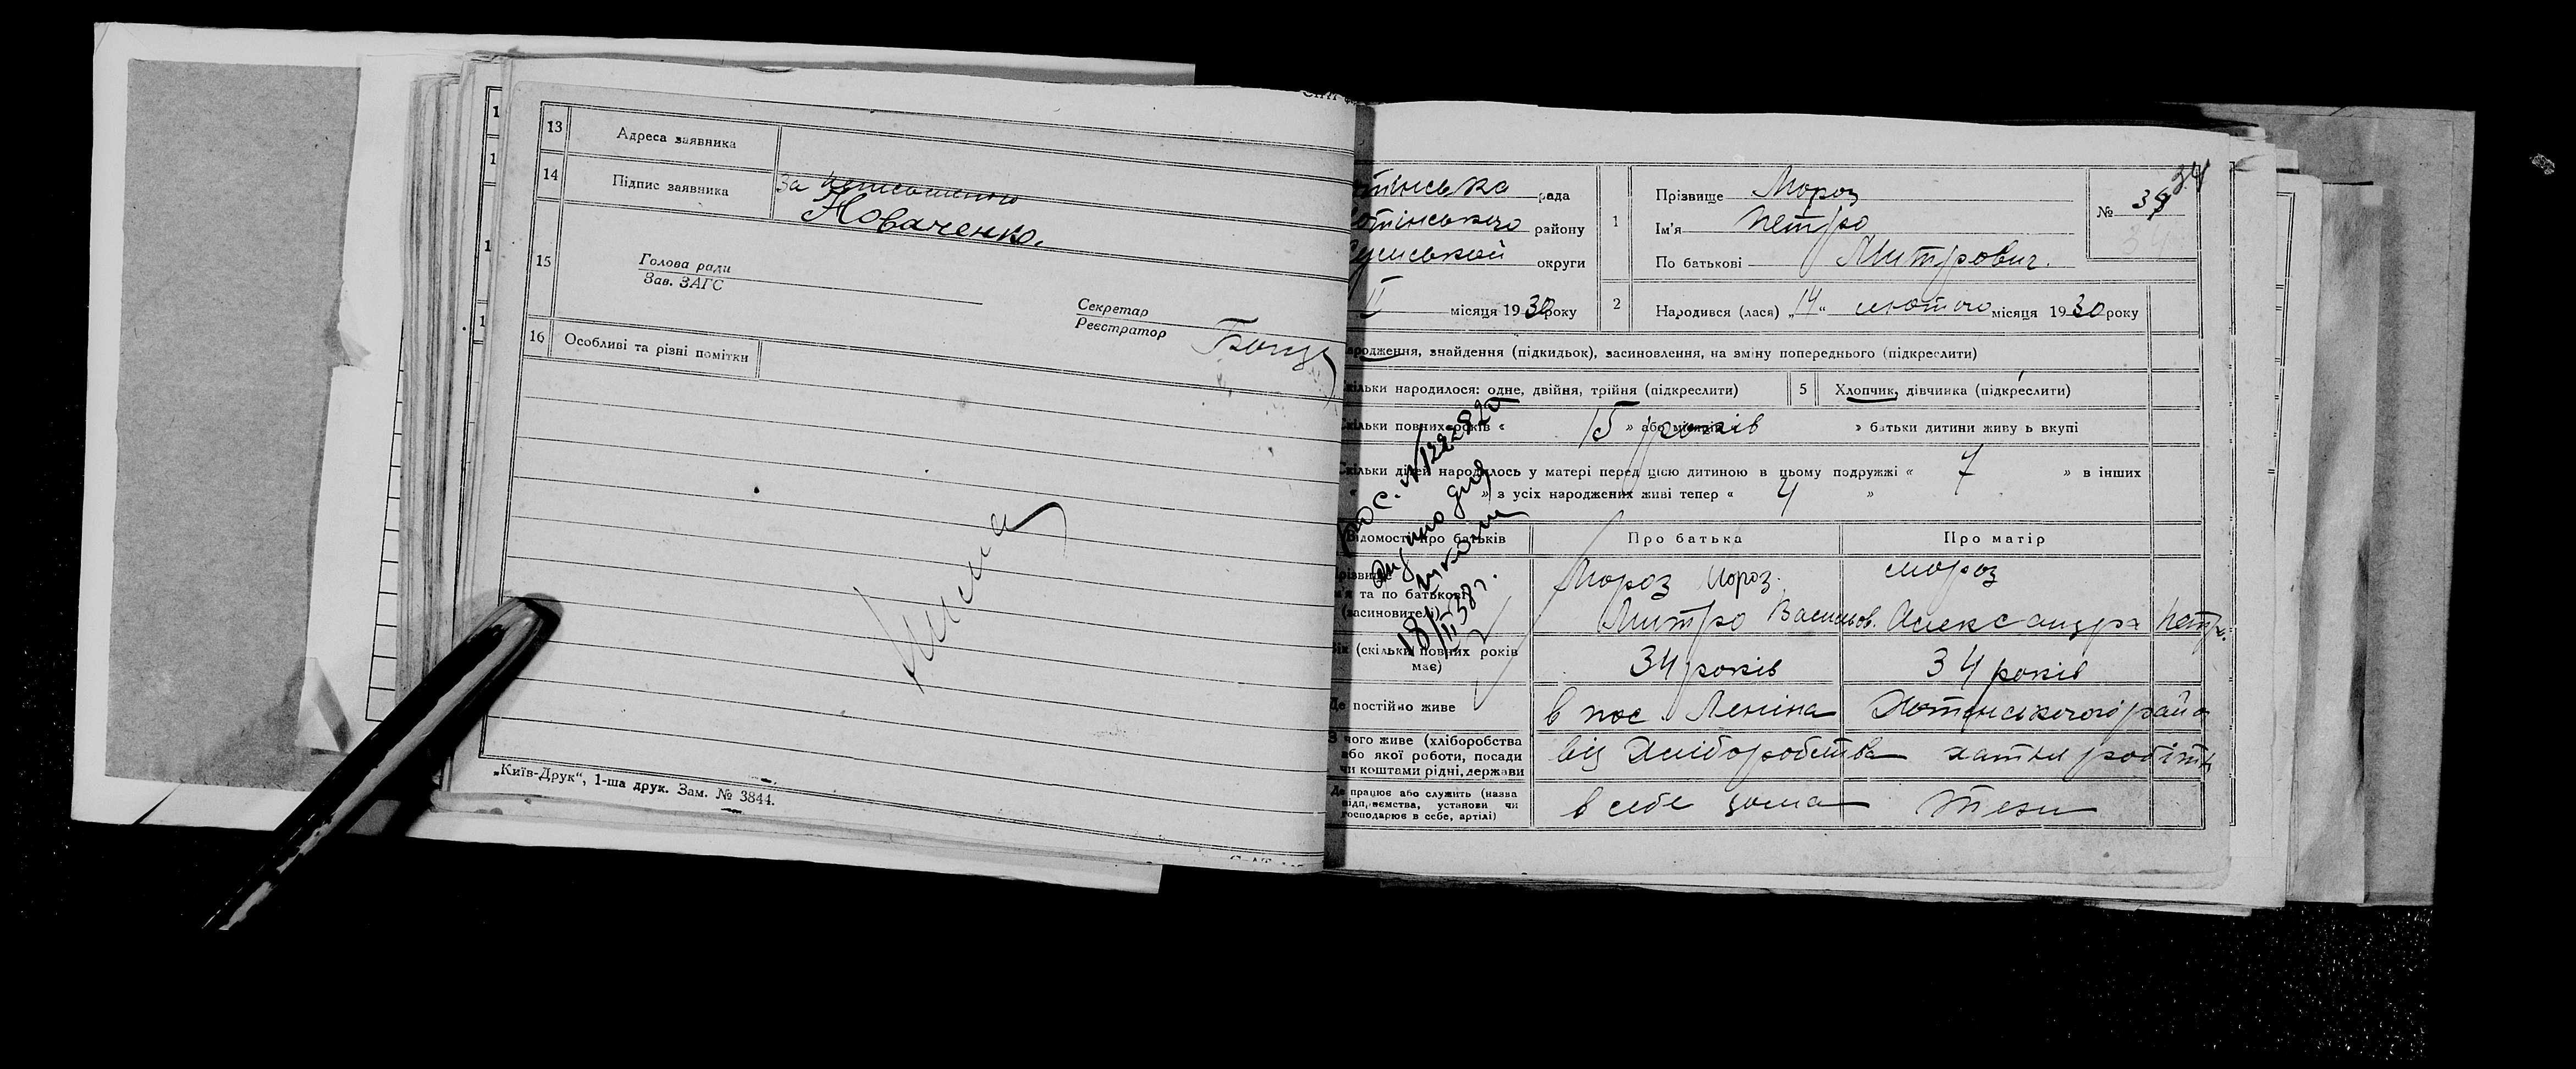 13 Адреса заявника
14 Підпис заявника За неписьменого
Новаченко.
15 Голова ради
Зав. ЗАГС
Секретар
Реєстратор
16 Особливі та різні помітки
„Київ-Друк“, 1-ша друк. Зам. № 3844.
рада
району
округи
II місяця 1930 року
1 Прізвище Мороз
Ім'я Петро
По батькові Митрович.
№ 34
2 Народився (лася) „14“ лютого місяця 1930 року
ародження, знайдення (підкидьок), засиновлення, на зміну попереднього (підкреслити)
кільки народилося: одне, двійня, трійня (підкреслити) 5 Хлопчик, дівчинка (підкреслити)
кільки повних років « 15 » або місяців років » батьки дитини живуть вкупі
кільки дітей народилось у матері перед цією дитиною в цьому подружжі « 7 » в інших
« » з усіх народжених живі тепер « 4 »
Відомості про батьків Про батька Про матір
різвище Мороз Мороз. Мороз
м'я та по батькові Митро Васильов. Александра Петр.
(засиновителі)
Вік (скільки повних років має) 34 років 34 років
Де постійно живе в пос. Леніна Хотінського райо
З чого живе (хліборобства
або якої роботи, посади
чи коштами рідні, держави від хліборобства
Де працює або служить (назва
підприємства, установи чи
господарює в себе, артілі) в себе дома тежи
18/II 38 г.